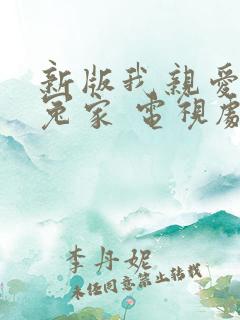 新版我亲爱
冤家 電視處
李丹妮
未经同意禁止转载